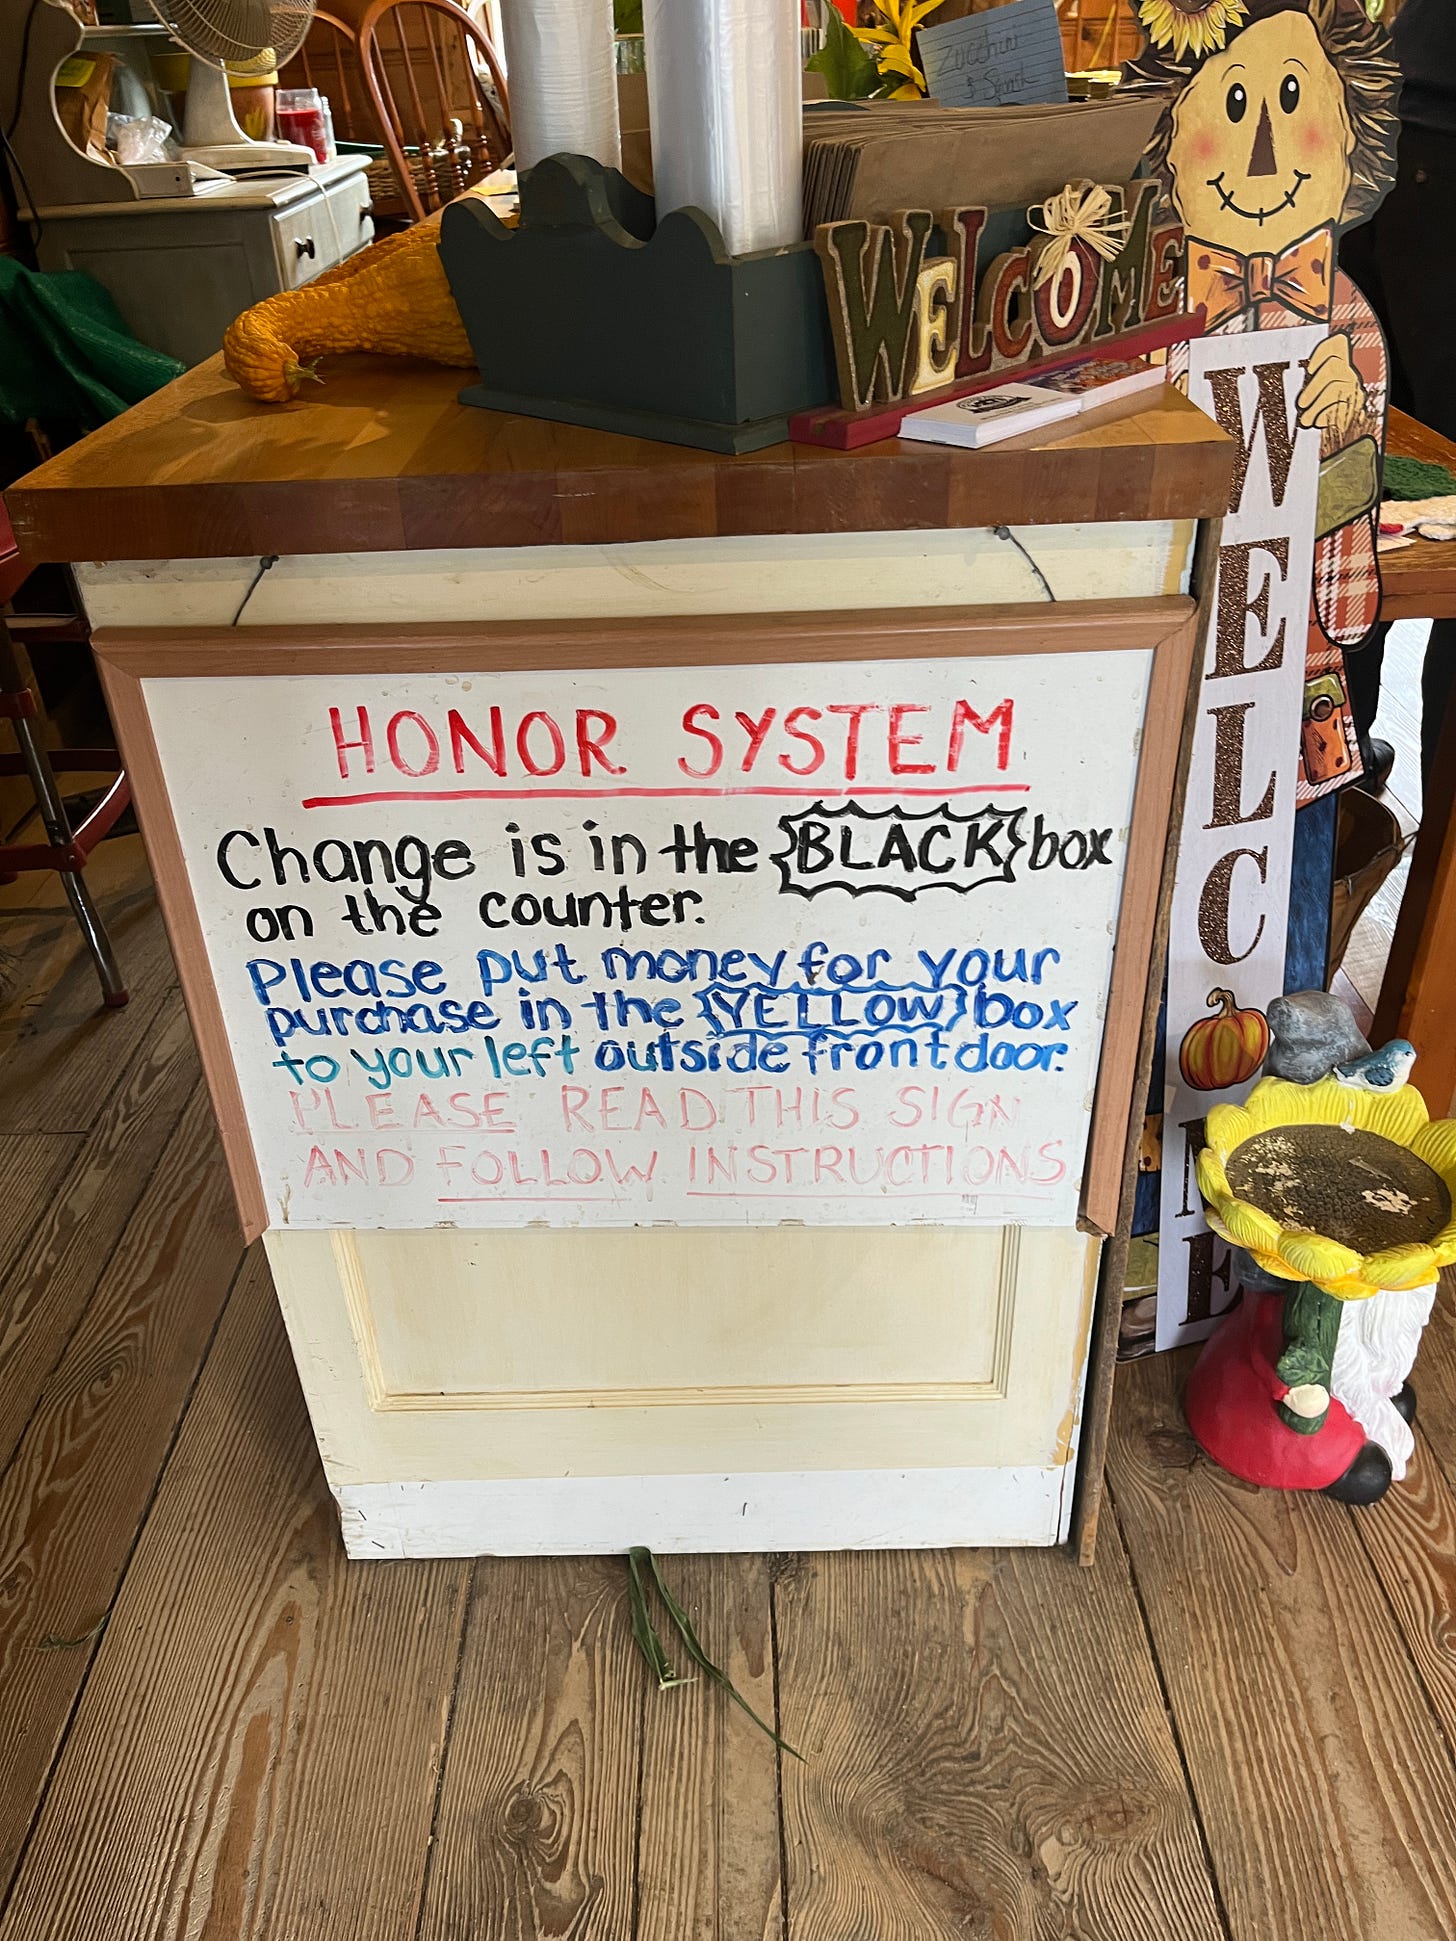 Zucchini
& Squash
WELCOME
WELCOME
HONOR SYSTEM
Change is in the {BLACK} box
on the counter.
Please put money for your
purchase in the {YELLOW} box
to your left outside front door.
PLEASE READ THIS SIGN
AND FOLLOW INSTRUCTIONS